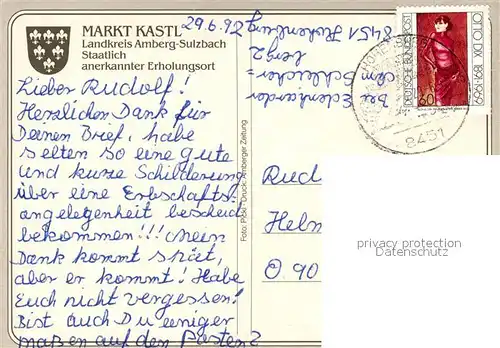 MARKT KASTL
Landkreis Amberg-Sulzbach
Staatlich
anerkannter Erholungsort
29.6.92
Lieber Rudolf!
Herzlichen Dank für
Deinen Brief, habe
selten so eine gute
und kurze Schilderung
über eine Erbschafts-
angelegenheit bescheid
bekommen!!! Mein
Dank kommt spät,
aber er kommt! Habe
Euch nicht vergessen!
Bist auch Du einiger
maßen auf den Posten?
bei
8451
Foto: Pöpl · Druck: Amberger Zeitung
OTTO DIX 1891-1969
DEUTSCHE BUNDESPOST
60
8451
Rud
Helm
O. 90
privacy protection
Datenschutz